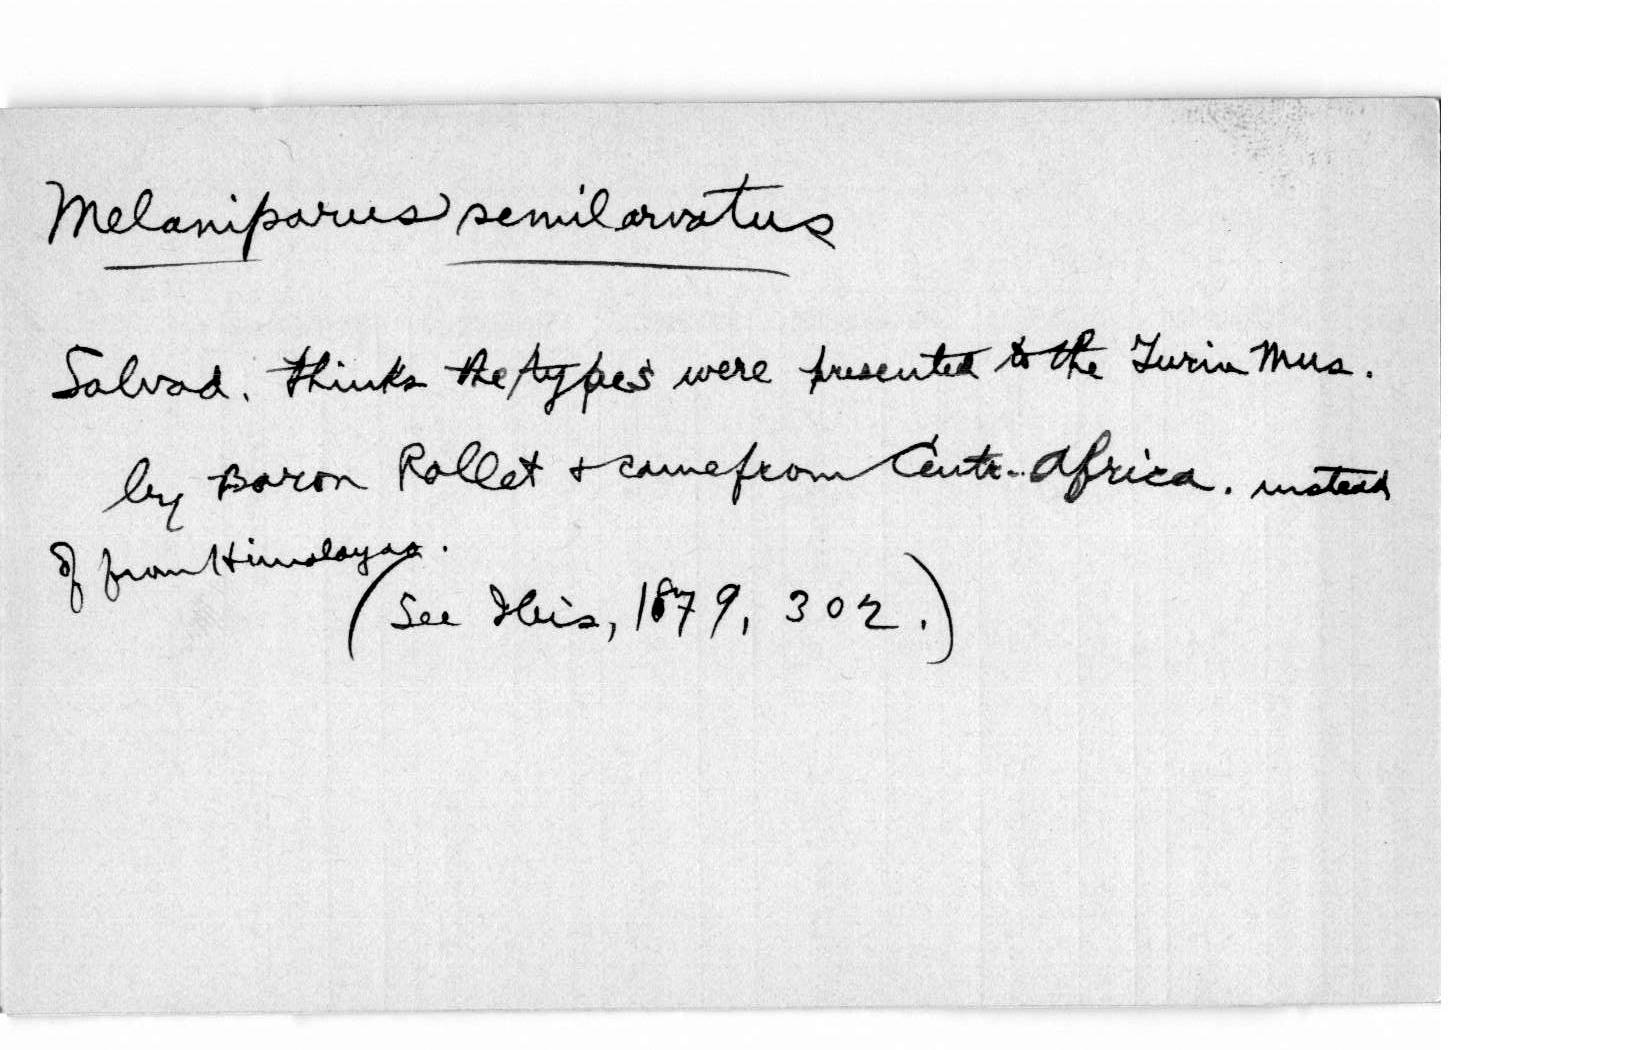 Melaniparus semilarvatus
Salvad. thinks the types were presented to the Turin Mus.
by Baron Rollet & came from Centr. Africa. instead
of from Himalayas.
(See Ibis, 1879, 302.)